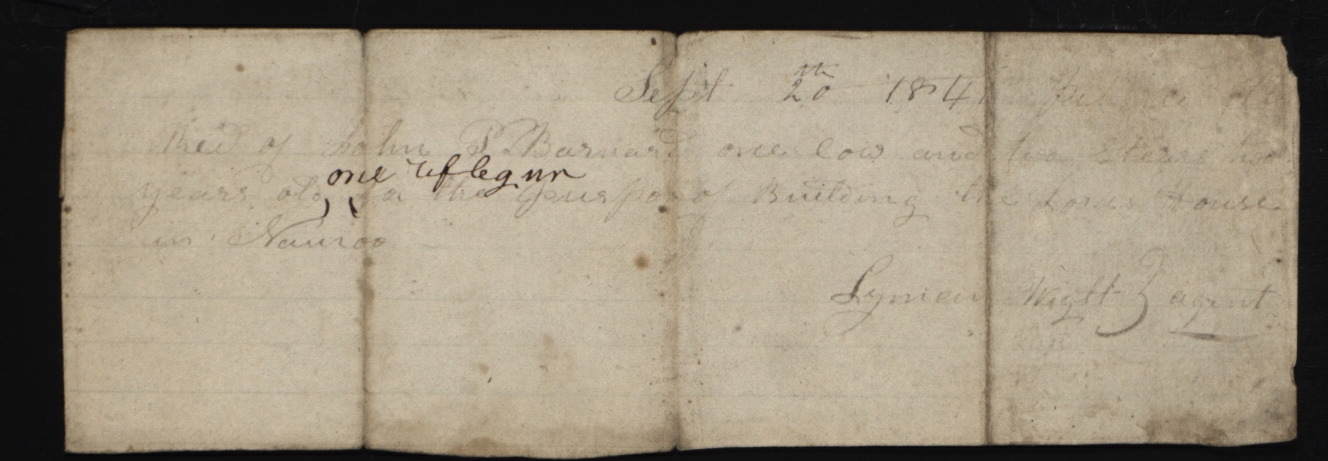 Sept 20th 1841
Recd of John P. Barnard one Cow and two steers two
one riflegun
years old for the purpos of Building the Lords House
in Nauvoo
Lyman Wight } agent